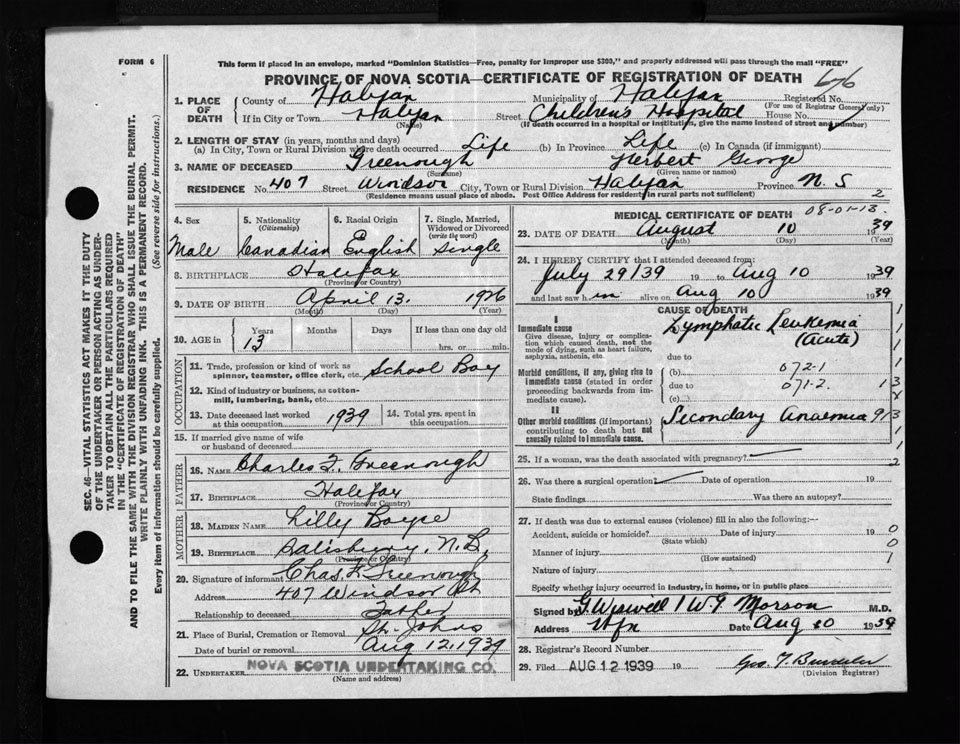 FORM 6
This form if placed in an envelope, marked "Dominion Statistics—Free, penalty for improper use $300," and properly addressed will pass through the mail "FREE"
PROVINCE OF NOVA SCOTIA—CERTIFICATE OF REGISTRATION OF DEATH
676
SEC. 46—VITAL STATISTICS ACT MAKES IT THE DUTY
OF THE UNDERTAKER OR PERSON ACTING AS UNDER-
TAKER TO OBTAIN ALL THE PARTICULARS REQUIRED
IN THE "CERTIFICATE OF REGISTRATION OF DEATH"
AND TO FILE THE SAME WITH THE DIVISION REGISTRAR WHO SHALL ISSUE THE BURIAL PERMIT.
WRITE PLAINLY WITH UNFADING INK. THIS IS A PERMANENT RECORD.
Every item of information should be carefully supplied. (See reverse side for instructions.)
1. PLACE OF DEATH County of Halifax Municipality of Halifax Registered No.
(For use of Registrar General only)
If in City or Town Halifax Street Children's Hospital House No.
(Name) (If death occurred in a hospital or institution, give the name instead of street and number)
2. LENGTH OF STAY (in years, months and days)
(a) In City, Town or Rural Division where death occurred Life (b) In Province Life (c) In Canada (if immigrant)
3. NAME OF DECEASED Greenough Herbert George
(Surname) (Given name or names)
RESIDENCE No. 407 Street Windsor City, Town or Rural Division Halifax Province N.S
(Residence means usual place of abode. Post Office Address for residents in rural parts not sufficient) 2
4. Sex 5. Nationality (Citizenship) 6. Racial Origin 7. Single, Married, Widowed or Divorced (write the word)
Male Canadian English Single
8. BIRTHPLACE Halifax
(Province or Country)
9. DATE OF BIRTH April 13. 1926
(Month) (Day) (Year)
10. AGE in Years Months Days If less than one day old
13 hrs. or min.
OCCUPATION
11. Trade, profession or kind of work as spinner, teamster, office clerk, etc. School Boy
12. Kind of industry or business, as cotton-mill, lumbering, bank, etc.
13. Date deceased last worked at this occupation 1939 14. Total yrs. spent in this occupation
15. If married give name of wife or husband of deceased
FATHER
16. NAME Charles F. Greenough
17. BIRTHPLACE Halifax
(Province or Country)
MOTHER
18. MAIDEN NAME Lilly Boyce
19. BIRTHPLACE Salisbury, N.B.
(Province or Country)
20. Signature of informant Chas F. Greenough
Address 407 Windsor St
Relationship to deceased Father
21. Place of Burial, Cremation or Removal St. Johns
Date of burial or removal Aug 12, 1939
22. UNDERTAKER NOVA SCOTIA UNDERTAKING CO.
(Name and address)
MEDICAL CERTIFICATE OF DEATH 08-01-13.
23. DATE OF DEATH August 10 1939
(Month) (Day) (Year)
24. I HEREBY CERTIFY that I attended deceased from:
July 29/39 19 to Aug 10 1939
and last saw him alive on Aug 10 1939
CAUSE OF DEATH
I
Immediate cause
Give disease, injury or complication which caused death, not the mode of dying, such as heart failure, asphyxia, asthenia, etc.
Lymphatic Leukemia
(Acute)
due to
Morbid conditions, if any, giving rise to immediate cause (stated in order proceeding backwards from immediate cause).
(b) 072-1
due to 071-2.
(c)
II
Other morbid conditions (if important) contributing to death but not causally related to immediate cause.
Secondary Anaemia
25. If a woman, was the death associated with pregnancy?
26. Was there a surgical operation? Date of operation 19
State findings Was there an autopsy?
27. If death was due to external causes (violence) fill in also the following:—
Accident, suicide or homicide? Date of injury 19
(State which)
Manner of injury
(How sustained)
Nature of injury
Specify whether injury occurred in industry, in home, or in public place
Signed by G. Wiswell / W. J. Morson M.D.
Address Hfx Date Aug 10 1939
28. Registrar's Record Number
29. Filed AUG 12 1939 19
(Division Registrar)